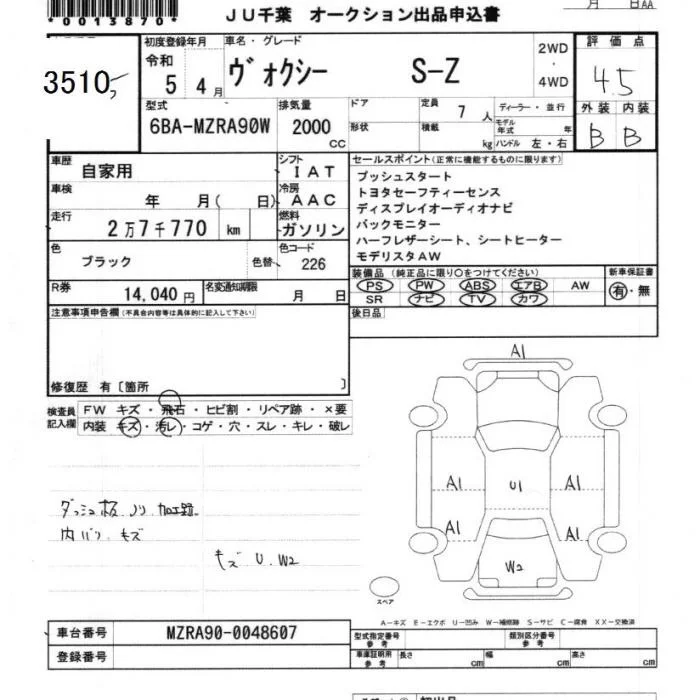 月 日AA
*0013870*
JU千葉 オークション出品申込書
3510
初度登録年月 車名・グレード 2WD・4WD 評価点
令和 5 4月 ヴォクシー S-Z 4.5
型式 排気量 ドア 定員 7人 ディーラー・並行 外装 内装
6BA-MZRA90W 2000CC 形状 積載 kg モデル年式 年 ハンドル 左・右 B B
車歴 自家用 シフト IAT セールスポイント(正常に機能するものに限ります)
車検 年 月( 日) 冷房 AAC
走行 2万7千770 km 燃料 ガソリン
プッシュスタート
トヨタセーフティーセンス
ディスプレイオーディオナビ
バックモニター
ハーフレザーシート、シートヒーター
モデリスタAW
色 ブラック 色替 色コード 226
装備品(純正品に限り○をつけてください) 新車保証書
PS PW ABS エアB AW 有・無
SR ナビ TV カワ
R券 14,040円 名変通知期限 月 日
後日品
注意事項申告欄(不具合内容等は具体的に記入して下さい)
修復歴 有〔箇所 〕
検査員記入欄 FW キズ・飛石・ヒビ割・リペア跡・×要
内装 キズ・汚レ・コゲ・穴・スレ・キレ・破レ
A1
A1 A1
U1
A1 A1
W2
スペア
ダッシュ板 ノリ 加工跡
内バリ キズ
キズ U W2
A-キズ E-エクボ U-凹み W-補修跡 S-サビ C-腐食 XX-交換済
車台番号 MZRA90-0048607
登録番号
型式指定番号参考 類別区分番号参考
車庫証明用参考 長さ cm 幅 cm 高さ cm